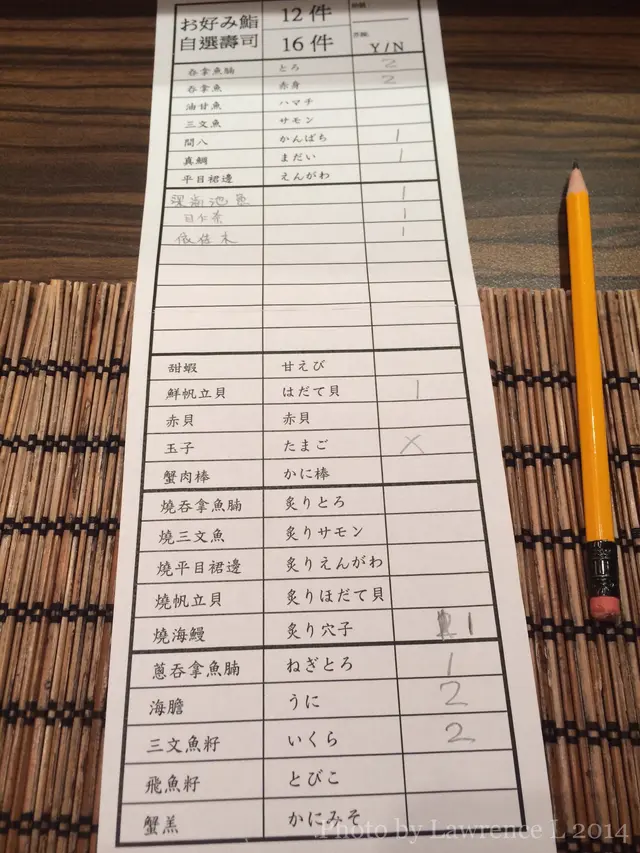 お好み鮨 12 件
自選壽司 16 件 Y/N
吞拿魚腩 とろ 2
吞拿魚 赤身 2
油甘魚 ハマチ
三文魚 サモン
間八 かんぱち 1
真鯛 まだい 1
平目裙邊 えんがわ
深 池魚 1
1
左 1
甜蝦 甘えび
鮮帆立貝 はだて貝 1
赤貝 赤貝
玉子 たまご X
蟹肉棒 かに棒
燒吞拿魚腩 炙りとろ
燒三文魚 炙りサモン
燒平目裙邊 炙りえんがわ
燒帆立貝 炙りほだて貝
燒海鰻 炙り穴子 1
蔥吞拿魚腩 ねぎとろ 1
海膽 うに 2
三文魚籽 いくら 2
飛魚籽 とびこ
蟹羔 かにみそ
Photo by Lawrence L 2014